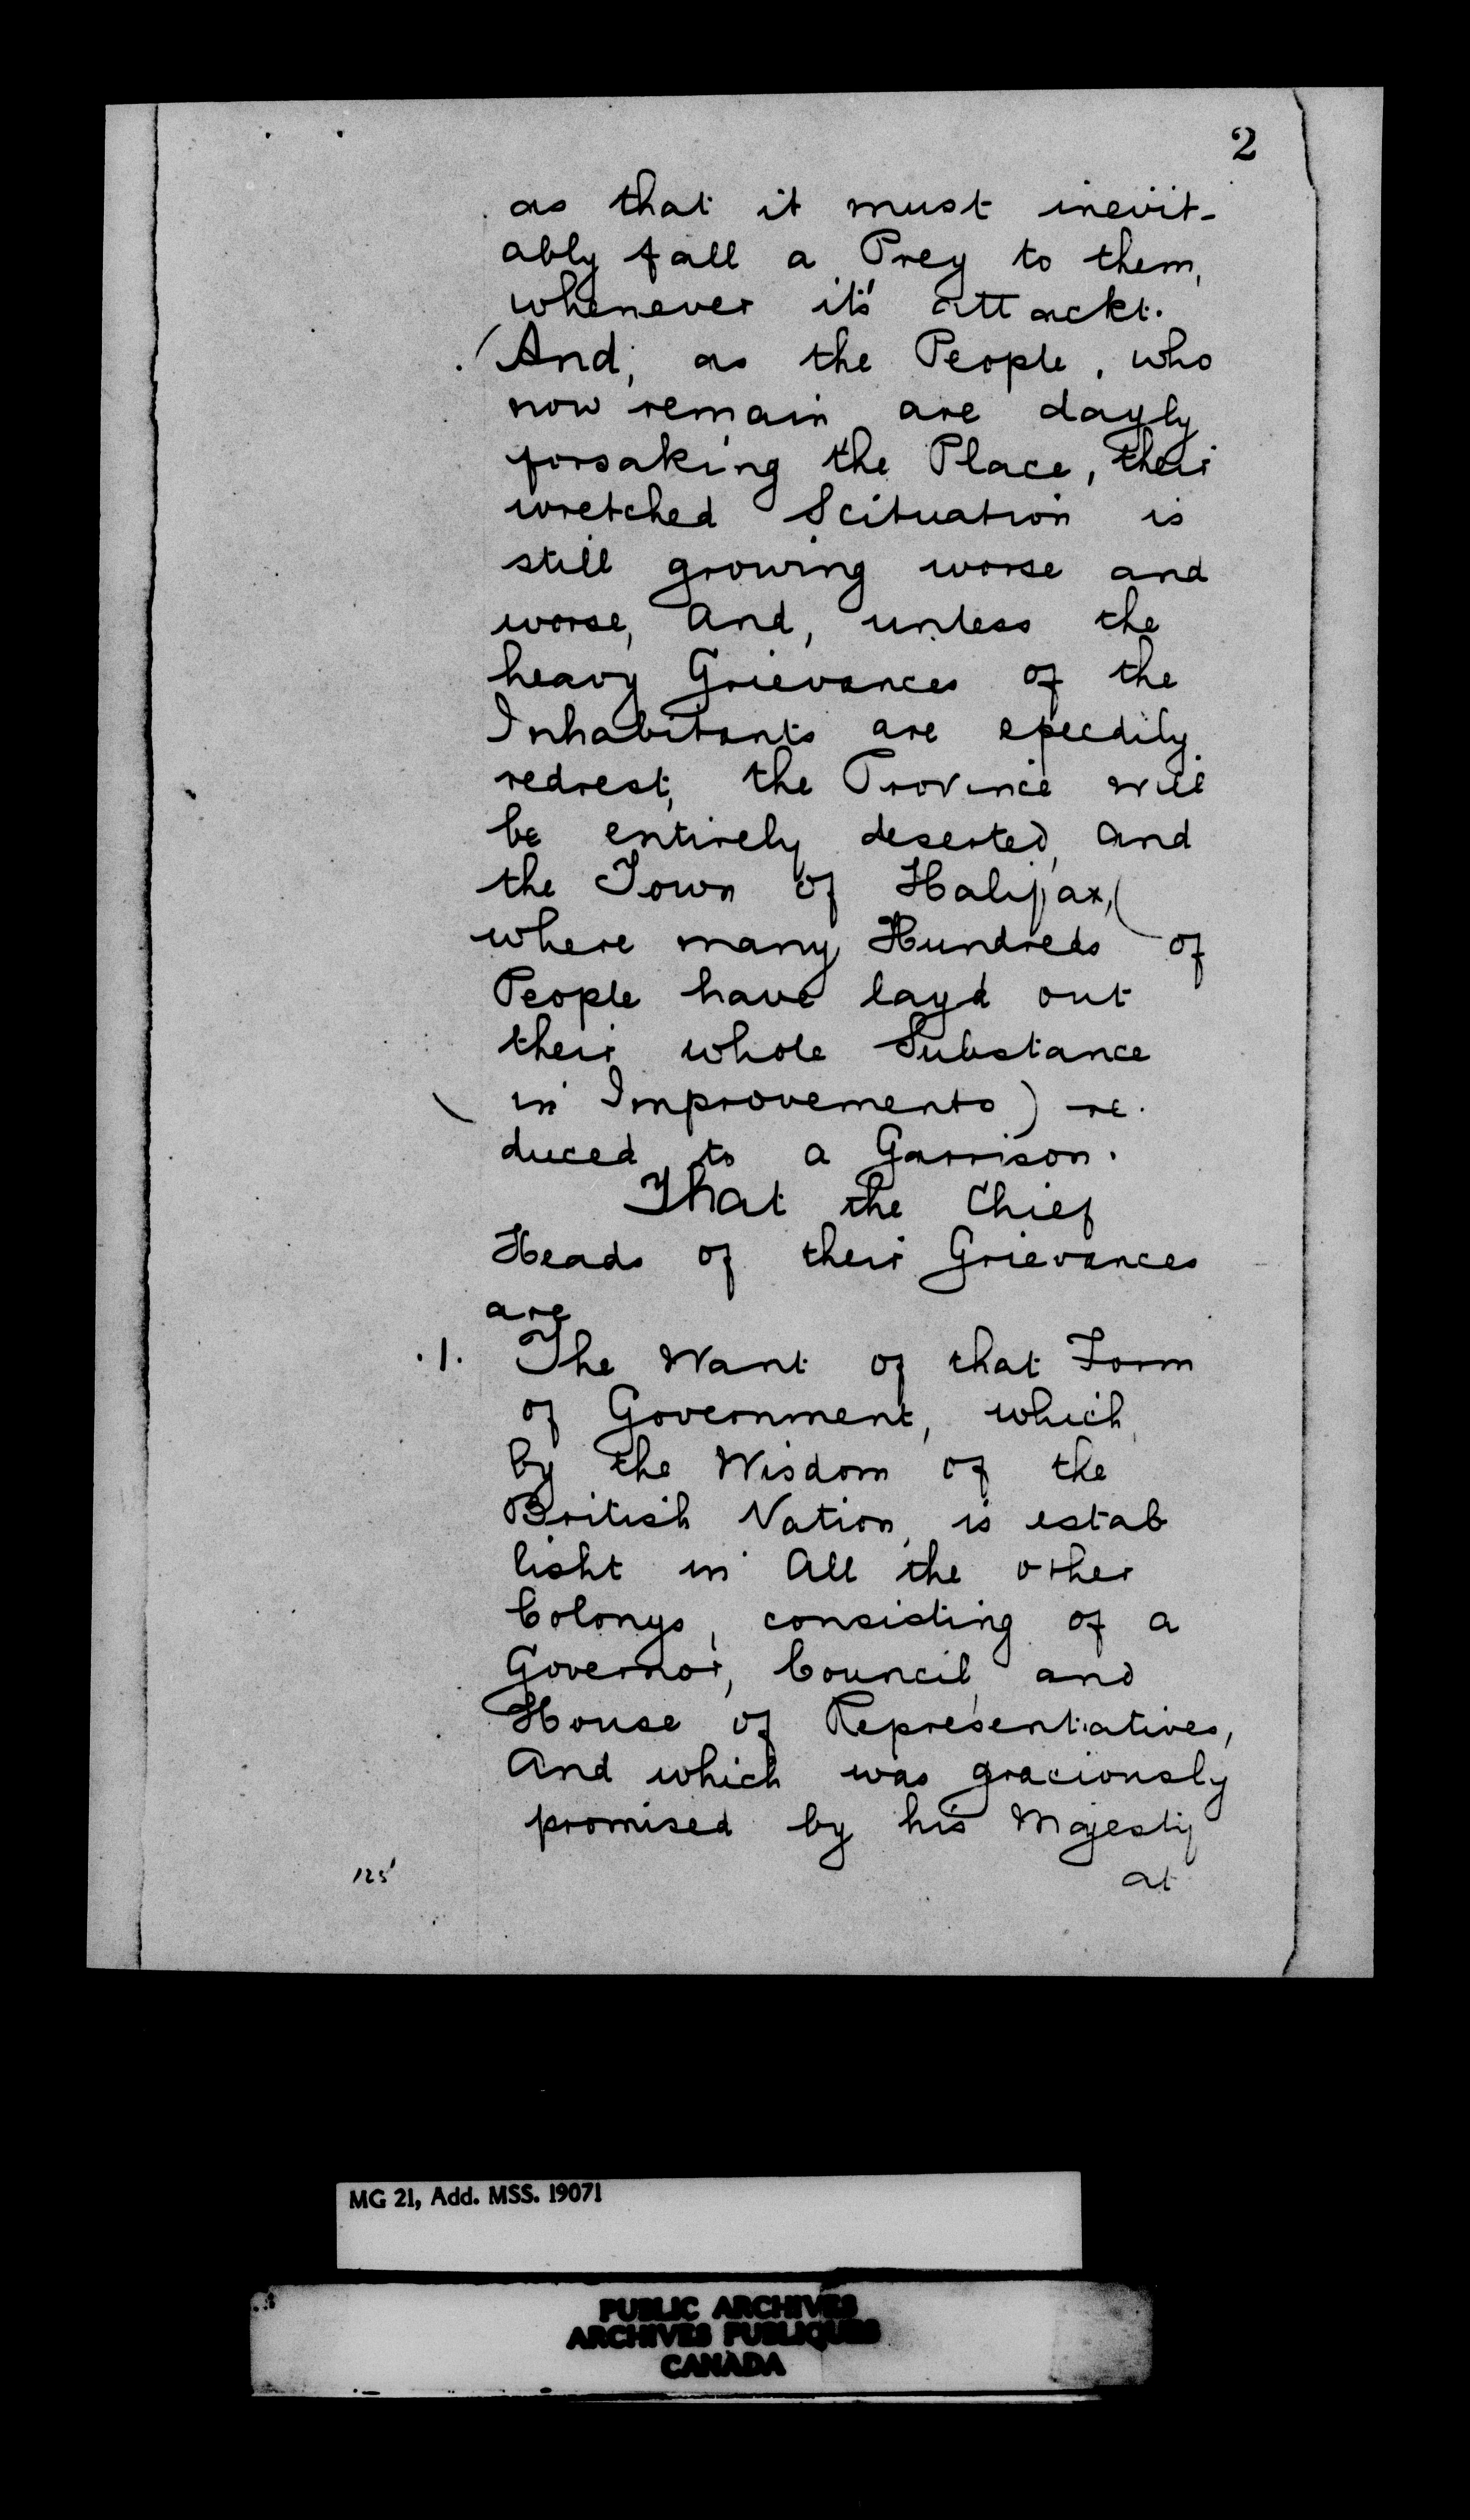 2
as that it must inevit-
ably fall a Prey to them,
whenever it's attackt.
(And, as the People, who
now remain are dayly
forsaking the Place, their
wretched Scituation is
still growing worse and
worse, And, unless the
heavy Grievances of the
Inhabitants are speedily
redrest, the Province will
be entirely deserted, and
the Town of Halifax, (
where many Hundreds of
People have layd out
their whole Substance
in Improvements) re-
duced to a Garrison.
That the Chief
Heads of their Grievances
are
.1. The Want of that Form
of Government, which,
by the Wisdom of the
British Nation, is estab
lisht in All the other
Colonys, consisting of a
Governor, Council, and
House of Representatives,
And which was graciously
promised by his Majesty
125 at
MG 21, Add. MSS. 19071
PUBLIC ARCHIVES
ARCHIVES PUBLIQUES
CANADA